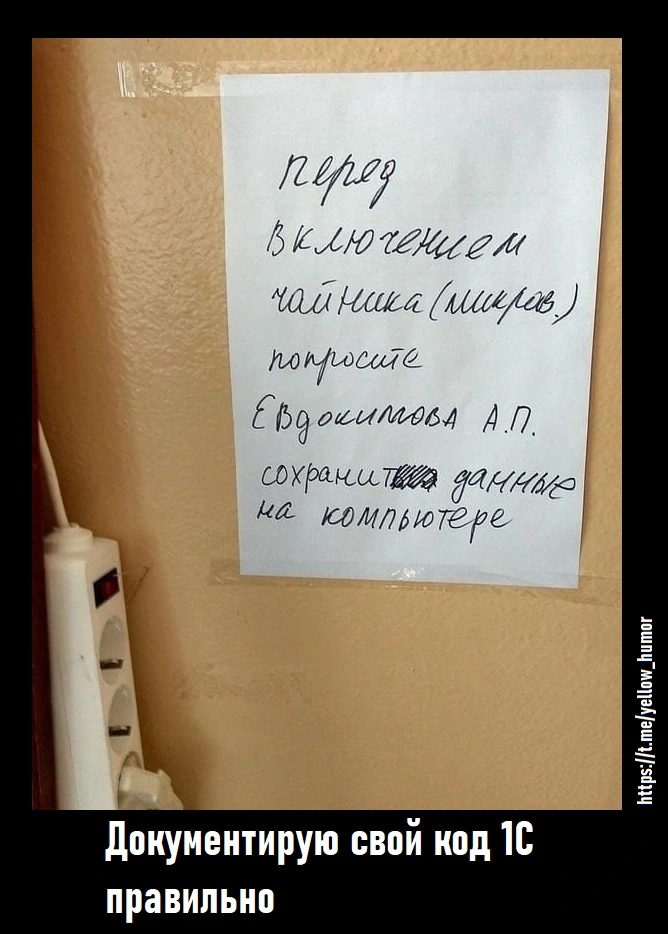 перед
включением
чайника (микров.)
попросите
Евдокимова А.П.
сохранить данные
на компьютере
https://t.me/yellow_humor
Документирую свой код 1С
правильно